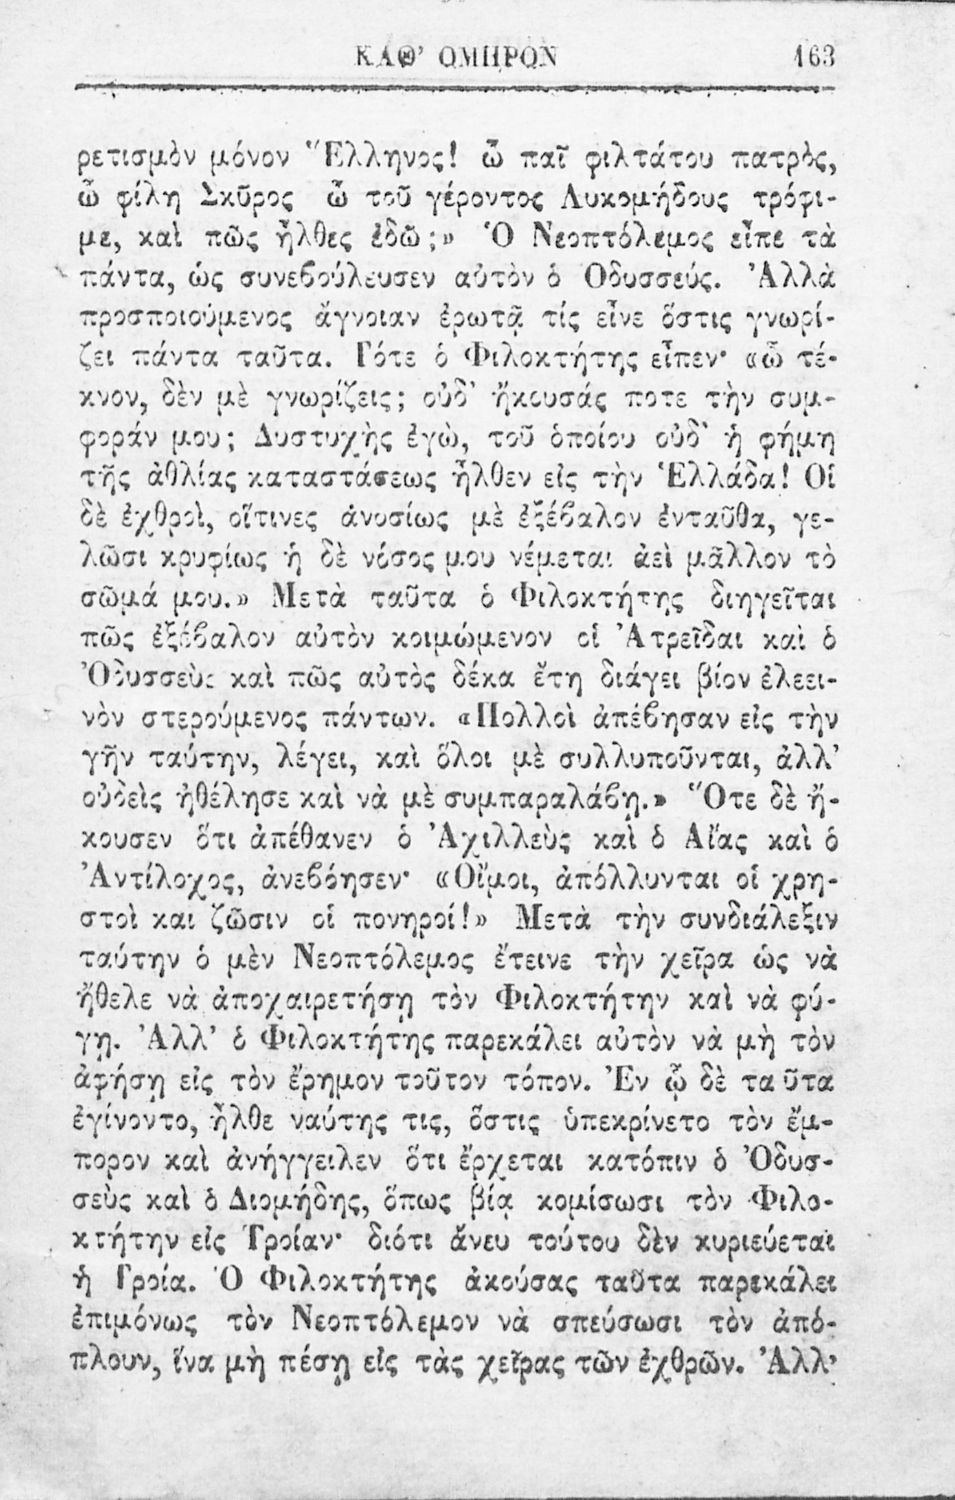 ΚΑΘ’ ΟΜΗΡΟΝ 163
ρετισμὸν μόνον Ἕλληνος! ὦ παῖ φιλτάτου πατρὸς,
ὦ φίλη Σκῦρος ὦ τοῦ γέροντος Λυκομήδους τρόφι-
με, καὶ πῶς ἦλθες ἐδῶ;» Ὁ Νεοπτόλεμος εἶπε τὰ
πάντα, ὡς συνεβούλευσεν αὐτὸν ὁ Ὀδυσσεύς. Ἀλλὰ
προσποιούμενος ἄγνοιαν ἐρωτᾷ τίς εἶνε ὅστις γνωρί-
ζει πάντα ταῦτα. Τότε ὁ Φιλοκτήτης εἶπεν· «ὦ τέ-
κνον, δὲν μὲ γνωρίζεις; οὐδ’ ἤκουσάς ποτε τὴν συμ-
φοράν μου; Δυστυχὴς ἐγὼ, τοῦ ὁποίου οὐδ’ ἡ φήμη
τῆς ἀθλίας καταστάσεως ἦλθεν εἰς τὴν Ἑλλάδα! Οἱ
δὲ ἐχθροὶ, οἵτινες ἀνοσίως μὲ ἐξέβαλον ἐνταῦθα, γε-
λῶσι κρυφίως ἡ δὲ νόσος μου νέμεται ἀεὶ μᾶλλον τὸ
σῶμά μου.» Μετὰ ταῦτα ὁ Φιλοκτήτης διηγεῖται
πῶς ἐξέβαλον αὐτὸν κοιμώμενον οἱ Ἀτρεῖδαι καὶ ὁ
Ὀδυσσεὺς καὶ πῶς αὐτὸς δέκα ἔτη διάγει βίον ἐλεει-
νὸν στερούμενος πάντων. «Πολλοὶ ἀπέβησαν εἰς τὴν
γῆν ταύτην, λέγει, καὶ ὅλοι μὲ συλλυποῦνται, ἀλλ’
οὐδεὶς ἠθέλησε καὶ νὰ μὲ συμπαραλάβῃ.» Ὅτε δὲ ἤ-
κουσεν ὅτι ἀπέθανεν ὁ Ἀχιλλεὺς καὶ ὁ Αἴας καὶ ὁ
Ἀντίλοχος, ἀνεβόησεν· «Οἴμοι, ἀπόλλυνται οἱ χρη-
στοὶ και ζῶσιν οἱ πονηροί!» Μετὰ τὴν συνδιάλεξιν
ταύτην ὁ μὲν Νεοπτόλεμος ἔτεινε τὴν χεῖρα ὡς νὰ
ἤθελε νὰ ἀποχαιρετήσῃ τὸν Φιλοκτήτην καὶ νὰ φύ-
γῃ. Ἀλλ’ ὁ Φιλοκτήτης παρεκάλει αὐτὸν νὰ μὴ τὸν
ἀφήσῃ εἰς τὸν ἔρημον τοῦτον τόπον. Ἐν ᾧ δὲ ταῦτα
ἐγίνοντο, ἦλθε ναύτης τις, ὅστις ὑπεκρίνετο τὸν ἔμ-
πορον καὶ ἀνήγγειλεν ὅτι ἔρχεται κατόπιν ὁ Ὀδυσ-
σεὺς καὶ ὁ Διομήδης, ὅπως βίᾳ κομίσωσι τὸν Φιλο-
κτήτην εἰς Τροίαν· διότι ἄνευ τούτου δὲν κυριεύεται
ἡ Τροία. Ὁ Φιλοκτήτης ἀκούσας ταῦτα παρεκάλει
ἐπιμόνως τὸν Νεοπτόλεμον νὰ σπεύσωσι τὸν ἀπό-
πλουν, ἵνα μὴ πέσῃ εἰς τὰς χεῖρας τῶν ἐχθρῶν. Ἀλλ’